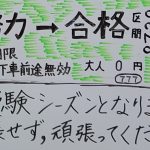 力→合格
区間
0326
期限
下車前途無効
大人 0円
777
験シーズンとなりま
せず,頑張ってくだ